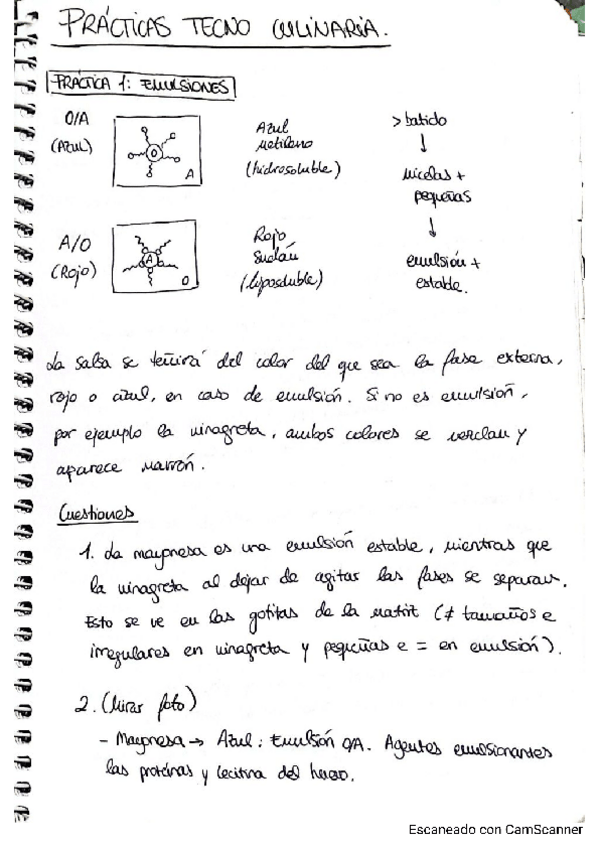 PRÁCTICAS TECNO CULINARIA.
PRÁCTICA 1: EMULSIONES
O/A
(Azul)
O
A
Azul
metileno
(hidrosoluble)
> batido
↓
micelas +
pequeñas
↓
emulsión +
estable.
A/O
(Rojo)
A
O
Rojo
Sudán
(liposoluble)
La salsa se teñirá del color del que sea la fase externa,
rojo o azul, en caso de emulsión. Si no es emulsión,
por ejemplo la vinagreta, ambos colores se mezclan y
aparece marrón.
Cuestiones
1. La mayonesa es una emulsión estable, mientras que
la vinagreta al dejar de agitar las fases se separan.
Esto se ve en las gotitas de la matriz (≠ tamaños e
irregulares en vinagreta y pequeñas e = en emulsión).
2. (Mirar foto)
- Mayonesa → Azul: Emulsión O/A. Agentes emulsionantes
las proteínas y lecitina del huevo.
Escaneado con CamScanner